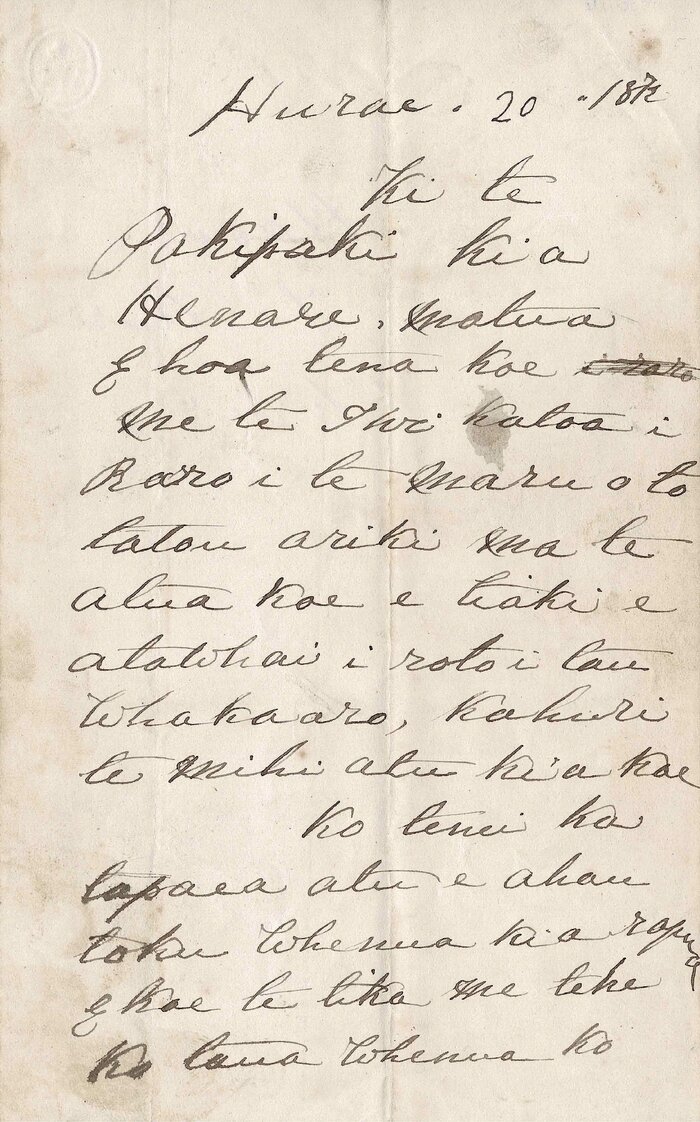 Hurae . 20 . 187
Ki te
Pakipaki kia
Henare . Matua
E hoa tena koe i raro
Me te Iwi katoa i
Raro i te Maru o to
tatou ariki Ma te
atua koe e tiaki e
atawhai i roto i tau
Whakaaro, kahuri
te Mihi atu kia koe
Ko tenei ka
tapaea atu e ahau
toku Whenua kia rapua
E koe te tika Me te he
Ko taua Whenua ko